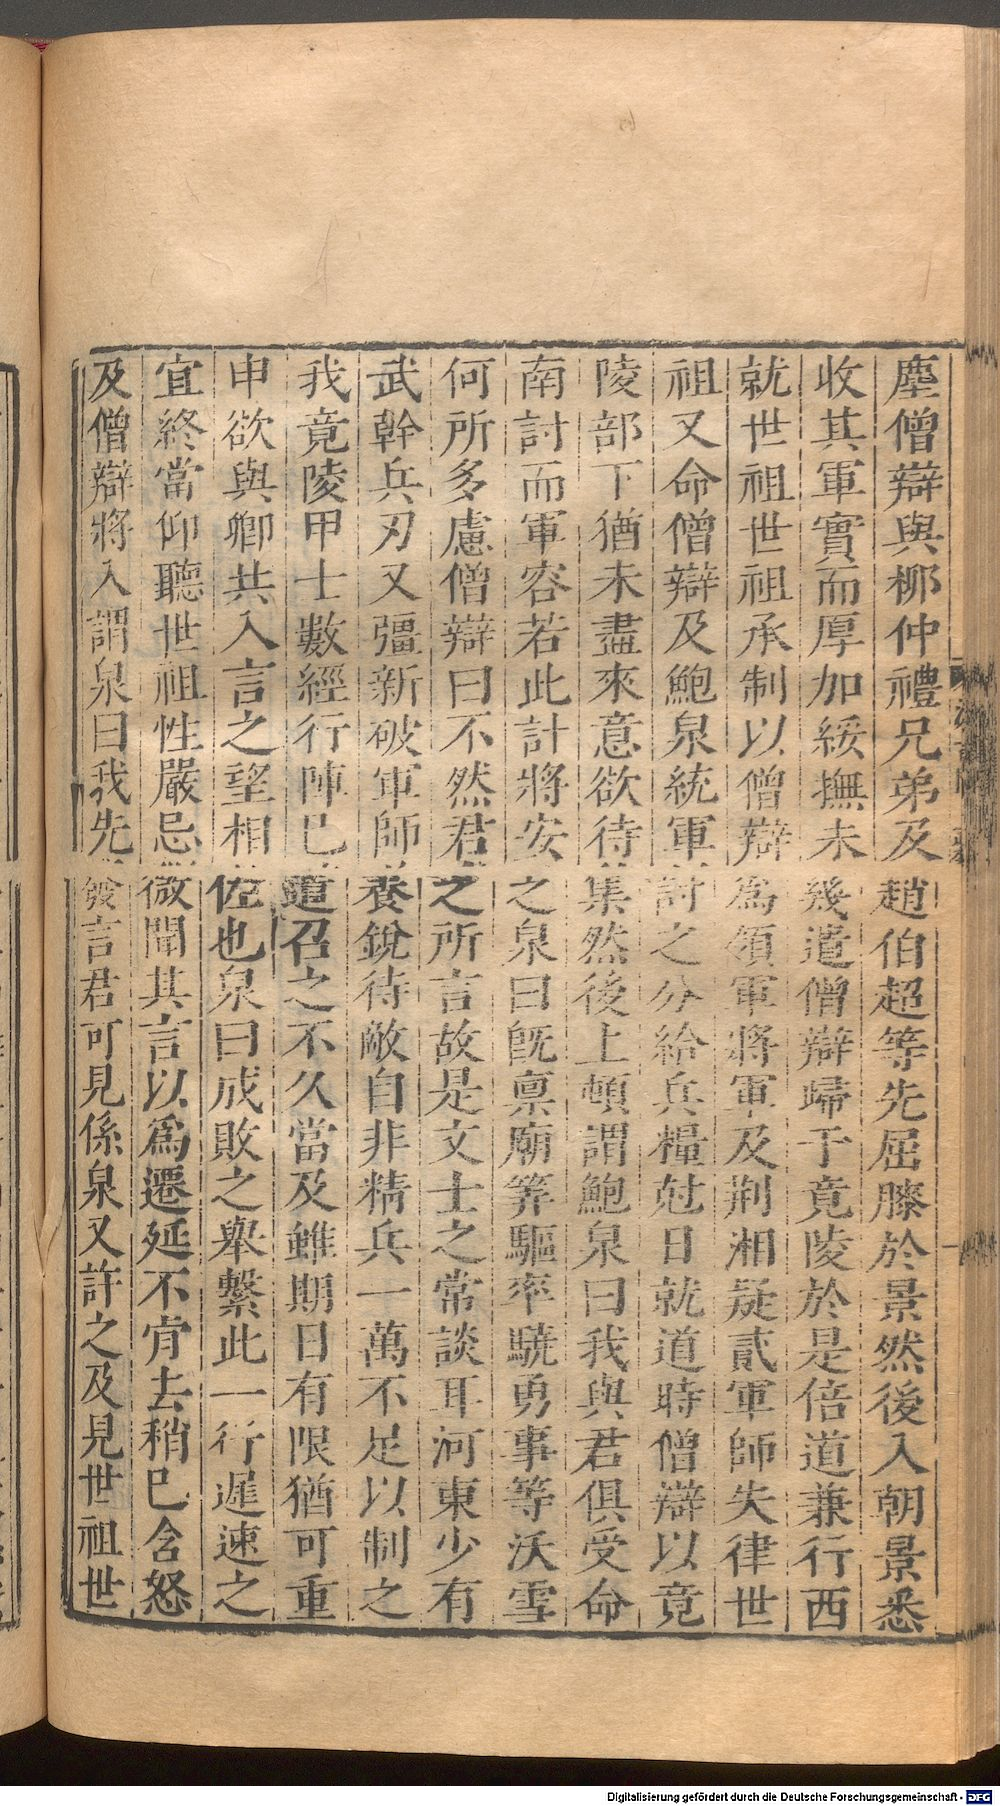 塵僧辯與柳仲禮兄弟及趙伯超等先屈膝於景然後入朝景悉
收其軍實而厚加綏撫未幾遣僧辯歸于竟陵於是倍道兼行西
就世祖世祖承制以僧辯爲領軍將軍及荆湘疑貳軍師失律世
祖又命僧辯及鮑泉統軍討之分給兵糧尅日就道時僧辯以竟
陵部下猶未盡來意欲待集然後上頓謂鮑泉曰我與君俱受命
南討而軍容若此計將安之泉曰旣禀廟筭驅率驍勇事等沃雪
何所多慮僧辯曰不然君之所言故是文士之常談耳河東少有
武幹兵刃又彊新破軍師養銳待敵自非精兵一萬不足以制之
我竟陵甲士數經行陣巳遣召之不久當及雖期日有限猶可重
申欲與卿共入言之望相佐也泉曰成敗之舉繫此一行遲速之
宜終當仰聽世祖性嚴忌微聞其言以爲遷延不肯去稍巳含怒
及僧辯將入謂泉曰我先發言君可見係泉又許之及見世祖世
Digitalisierung gefördert durch die Deutsche Forschungsgemeinschaft - DFG